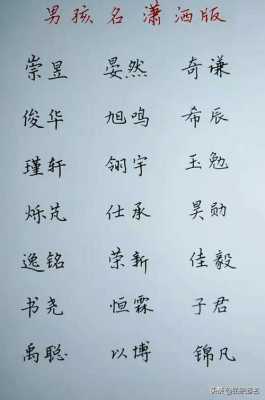 男孩名潇洒版
崇昱 晏然 奇谦
俊华 旭鸣 希辰
瑾轩 翎宇 玉勉
烁芃 仕承 昊勋
逸铭 荣新 佳毅
书尧 恒霖 子君
禹聪 以博 锦凡